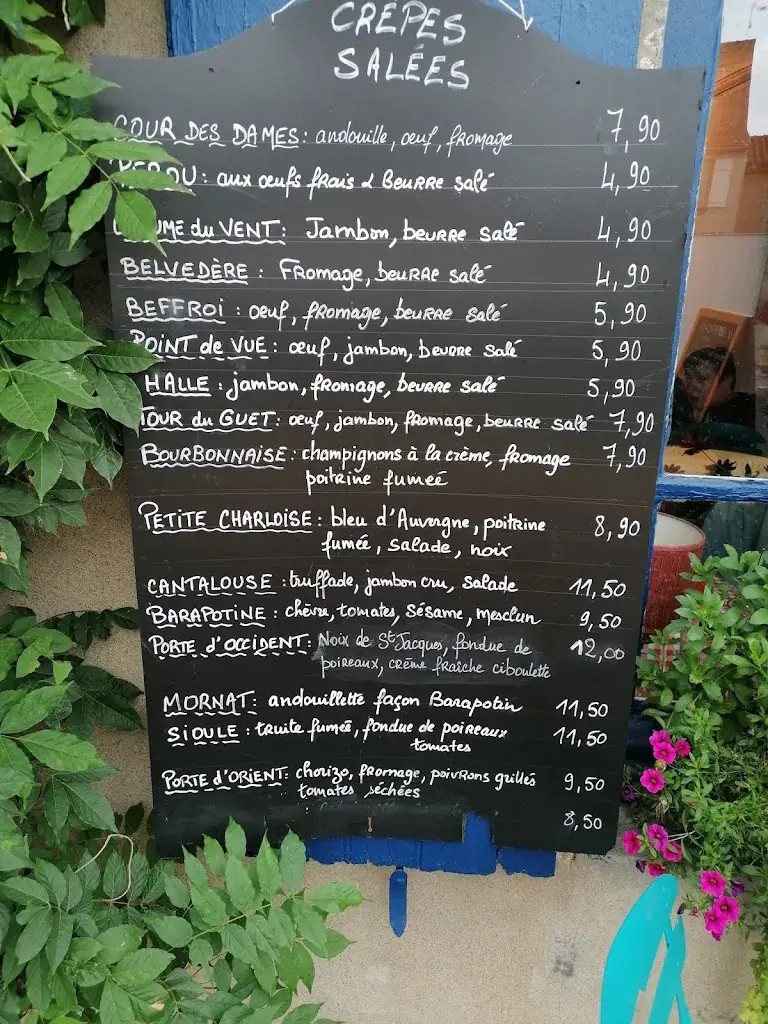 CRÊPES
SALÉES
COUR DES DAMES: andouille, oeuf, fromage 7,90
: aux œufs frais & Beurre salé 4,90
du VENT: Jambon, beurre salé 4,90
BELVEDÈRE : Fromage, beurre salé 4,90
BEFFROI : oeuf, fromage, beurre salé 5,90
POINT de VUE : œuf, jambon, beurre salé 5,90
HALLE : jambon, fromage, beurre salé 5,90
TOUR du GUET: œuf, jambon, fromage, beurre salé 7,90
BOURBONNAISE : champignons à la crème, fromage 7,90
poitrine fumeé
PETITE CHARLOISE : bleu d'Auvergne, poitrine 8,90
fumée, salade, noix
CANTALOUSE : truffade, jambon cru, salade 11,50
BARAPOTINE : chèvre, tomates, sésame, mesclun 9,50
PORTE d'OCCIDENT: Noix de St Jacques, fondue de 12,00
poireaux, crème fraîche ciboulette
MORNAT: andouillette façon Barapotin 11,50
SIOULE : truite fumeé, fondue de poireaux 11,50
tomates
PORTE d'ORIENT: chorizo, fromage, poivrons grillés 9,50
tomates séchées
8,50